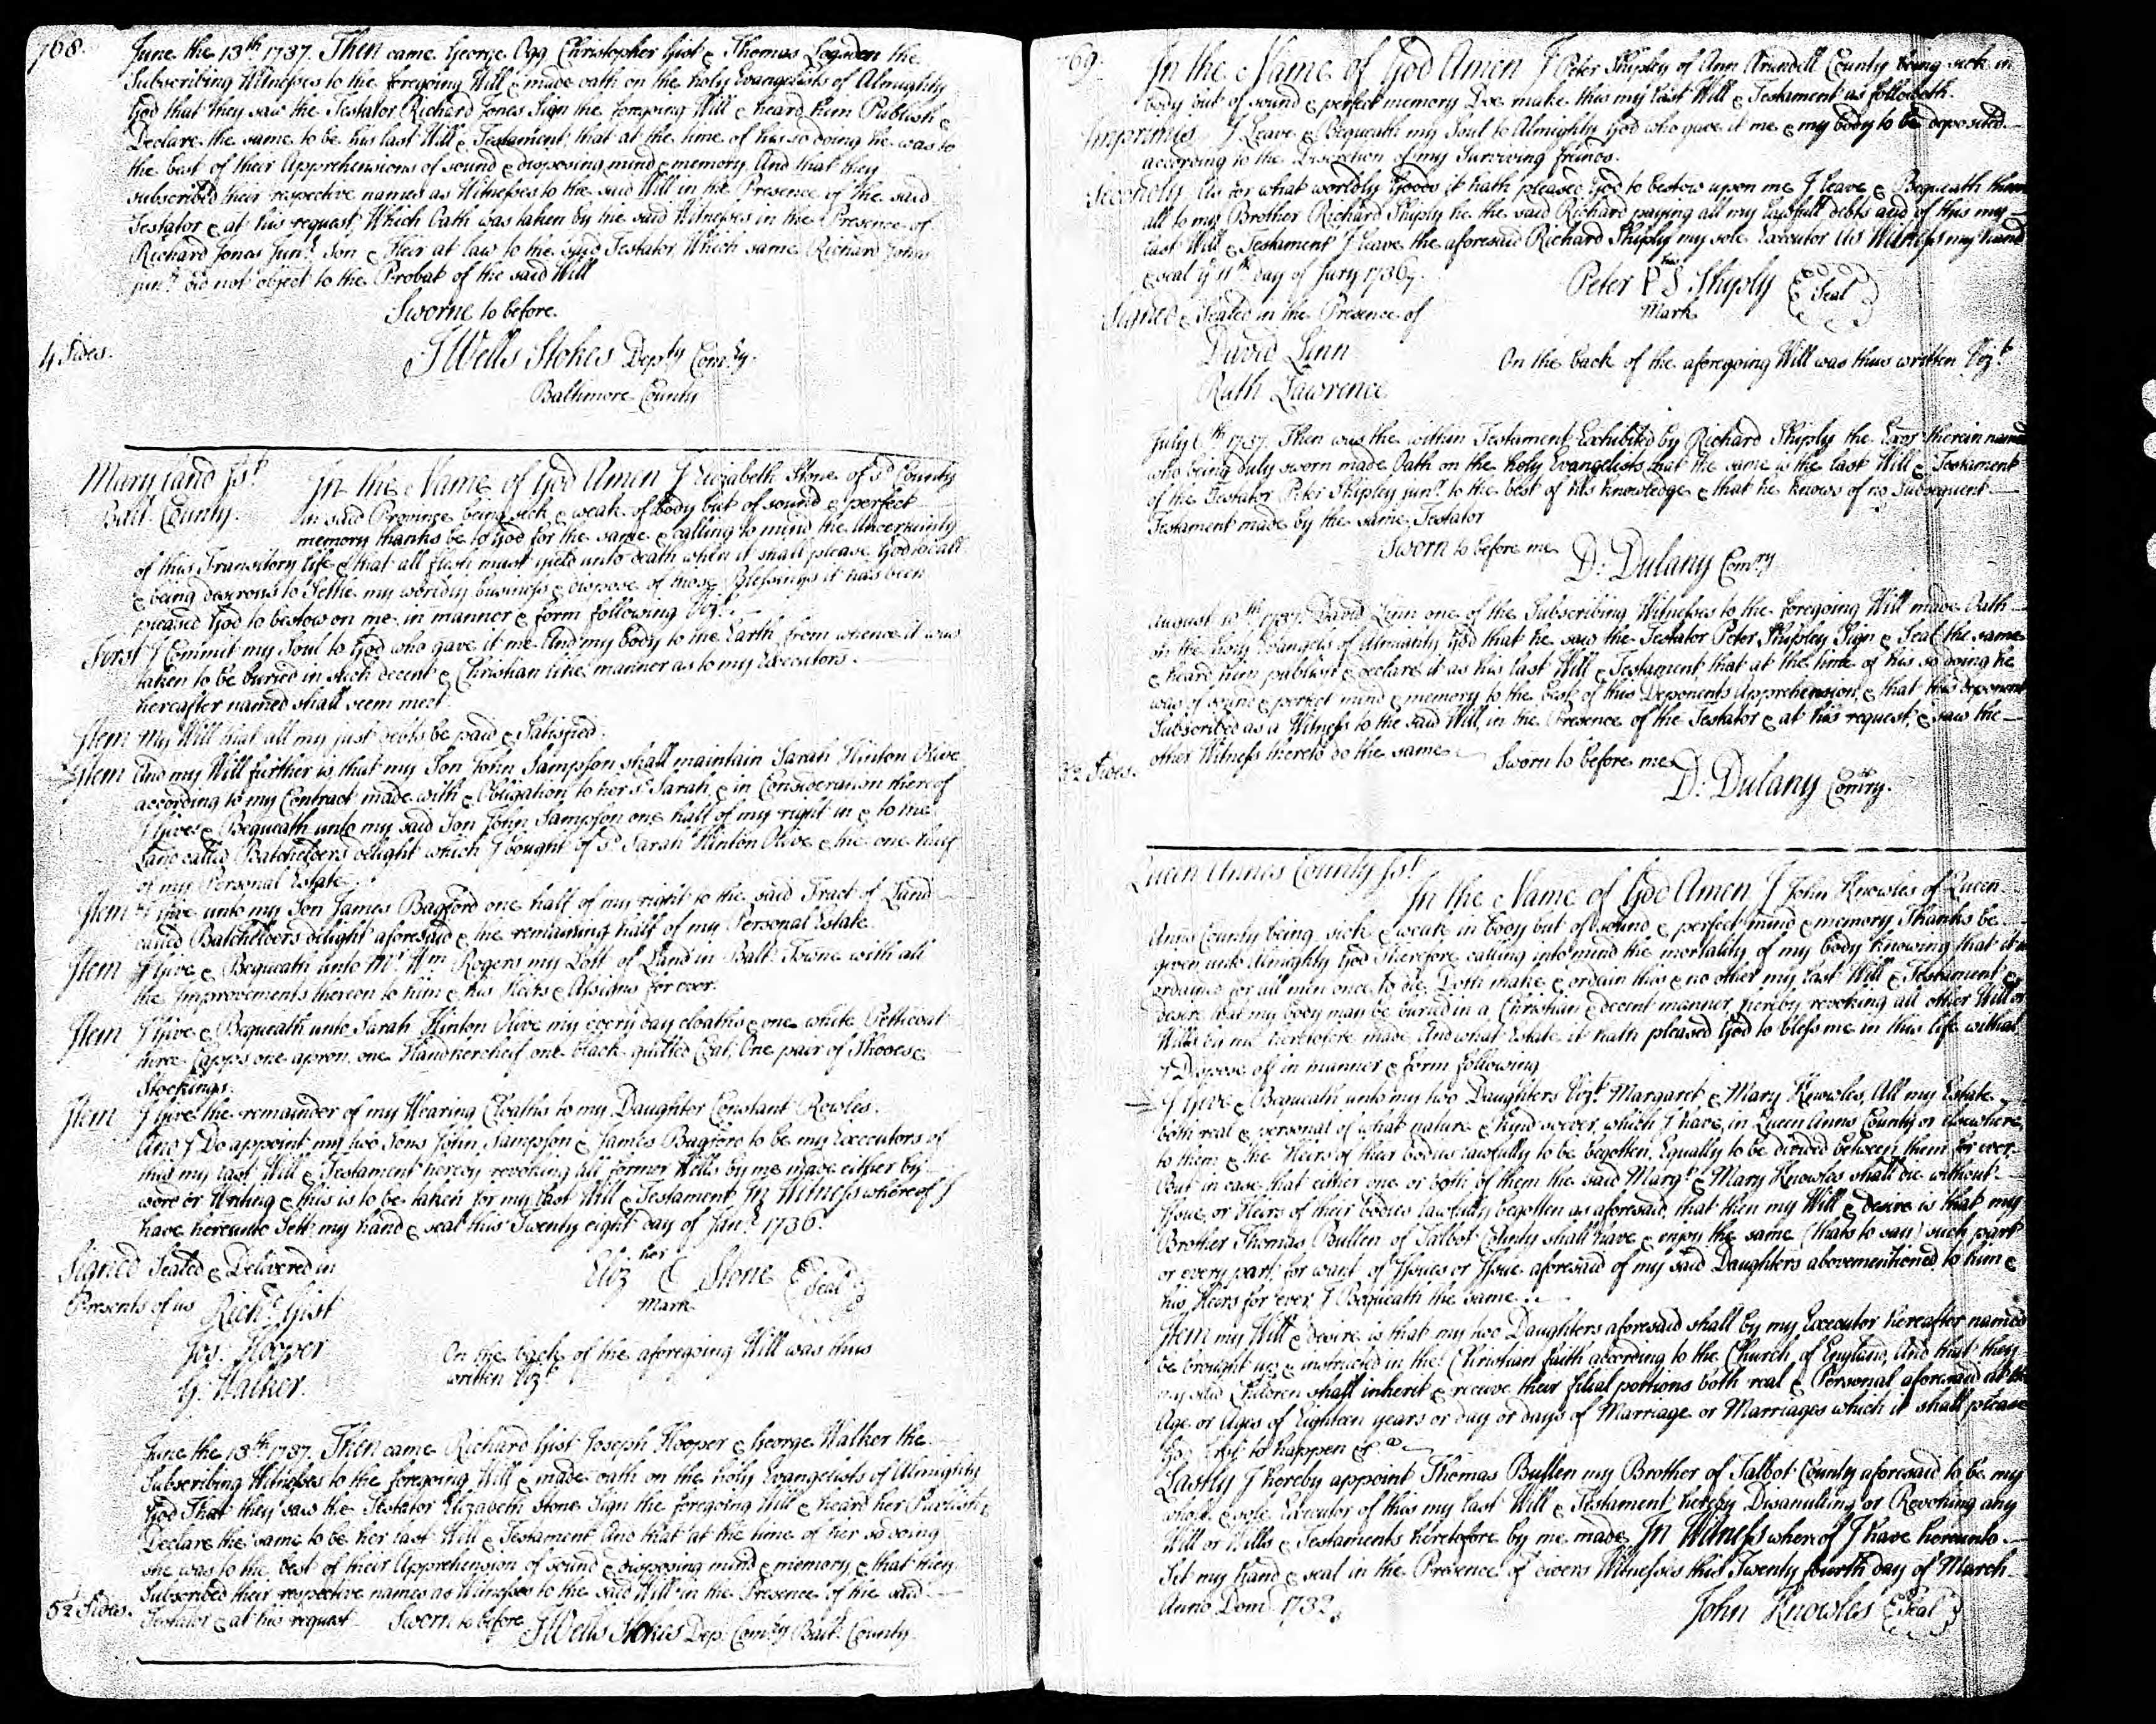 768.
June the 13th 1737. Then came George Ogg Christopher Gist & Thomas Logsden the
Subscribing Witnesses to the foregoing Will & made oath on the holy Evangelists of Almighty
God that they saw the Testator Richard Jones Sign the foregoing Will & heard him Publish &
Declare the same to be his last Will & Testament, that at the time of his so doing he was to
the best of their Apprehensions of sound & disposing mind & memory. And that they
subscribed their respective names as Witnesses to the said Will in the Presence of the said
Testator & at his request, Which Oath was taken by the said Witnesses in the Presence of
Richard Jones Junr. Son & Heir at law to the said Testator, Which same Richard Jones
junr. did not object to the Probat of the said Will
Sworne to before.
4 Sides.
JWells Stokes Depty Comry.
Baltimore County
Maryland Sst.
Balt. County.
In the Name of God Amen I Elizabeth Stone of sd. County
in said Province being sick & weak of body but of sound & perfect
memory thanks be to God for the same & calling to mind the Uncertainty
of this Transitory life & that all flesh must yield unto death when it shall please God to call
& being desirous to Settle my worldly business & dispose of those Blessings it has been
pleased God to bestow on me in manner & form following Vizt.
First I Commit my Soul to God who gave it me And my body to the Earth from whence it was
taken to be buried in such decent & Christian like manner as to my Executors
hereafter named shall seem meet
Item My Will that all my just debts be paid & Satisfied.
Item And my Will further is that my Son John Sampson shall maintain Sarah Hinton Olive
according to my Contract made with & Obligation to her sd. Sarah & in Consideration thereof
I Give & Bequeath unto my said Son John Sampson one half of my right in & to the
Land called Batchelders delight which I bought of sd. Sarah Hinton Olive & the one half
of my Personal Estate.
Item I Give unto my Son James Bagford one half of my right to the said Tract of Land
called Batchelders delight aforesaid & the remaining half of my Personal Estate
Item I Give & Bequeath unto Mr. Wm Rogers my Lott of Land in Balt. Towne with all
the Improvements thereon to him & his Heirs & Assigns for ever.
Item I Give & Bequeath unto Sarah Hinton Olive my every day cloaths & one white Petticoat
three Capps one apron, one Handkercheif one black quilted Coat, One pair of Shooes &
Stockings.
Item I Give the remainder of my Wearing Cloaths to my Daughter Constant Rowles.
And I Do appoint my two Sons John Sampson & James Bagford to be my Executors of
this my last Will & Testament hereby revoking all former Wills by me made either by
word or Writing & this is to be taken for my last Will & Testament In Witness whereof I
have hereunto Sett my hand & seal this Twenty eight day of Janr. 1736.
Signed Sealed & Delivered in
Presents of us
her
Eliz C Stone Seal
Mark
Richd. Gist
Jos. Hooper
G. Walker.
On the back of the aforegoing Will was thus
written Vizt.
June the 13th 1737. Then came Richard Gist Joseph Hooper & George Walker the
Subscribing Witnesses to the foregoing Will & made oath on the holy Evangelists of Almighty
God That they saw the Testator Elizabeth Stone Sign the foregoing Will & heard her Publish &
Declare the same to be her last Will & Testament And that at the time of her so doing
she was to the best of their Apprehension of sound & disposing mind & memory, & that they
Subscribed their respective names as Witnesses to the said Will in the Presence of the said
Testator & at his request Sworn to before
5½ Sides.
JWells Stokes Dep. Comry Balt. County
769.
In the Name of God Amen I Peter Shiply of Ann Arundell County being sick in
body but of sound & perfect memory Doe make this my last Will & Testament as followeth.
Imprimis I Leave & Bequeath my Soul to Almighty God who gave it me & my body to be deposited
according to the Discretion of my Surviving friends.
Secondly As for what worldly Goods it hath pleased God to bestow upon me I leave & Bequeath them
all to my Brother Richard Shiply he the said Richard paying all my lawfull debts and of this my
last Will & Testament I leave the aforesaid Richard Shiply my sole Executor As Witness my hand
& seal ye 11th day of 1736/7.
his
Peter P S Shiply Seal
Mark
Signed & Sealed in the Presence of
David Linn
Ruth Lawrence
On the back of the aforegoing Will was thus written Vizt.
July 6th 1737. Then was the within Testament Exhibited by Richard Shiply the Exor therein named
who being duly sworn made Oath on the holy Evangelists that the same is the last Will & Testament
of the Testator Peter Shipley junr. to the best of his knowledge & that he knows of no Subsequent
Testament made by the same Testator
Sworn to before me D: Dulany Comry
August 10th 1737. David Linn one of the Subscribing Witnesses to the foregoing Will made Oath
on the holy Evangels of Almighty God that he saw the Testator Peter Shipley Sign & Seal the same
& heard him publish & declare it as his last Will & Testament, that at the time of his so doing he
was of sound & perfect mind & memory to the best of this Deponents Apprehension, & that this deponent
Subscribed as a Witness to the said Will, in the Presence of the Testator & at his request, & saw the
other Witness thereto do the same
Sides.
Sworn to before me
D: Dulany Comry.
Queen Annes County Sst.
In the Name of God Amen I John Knowles of Queen
Anns County being sick & weak in body but of sound & perfect mind & memory Thanks be
given unto Almighty God Therefore calling into mind the mortality of my body knowing that it is
ordained for all men once to die Doth make & ordain this & no other my last Will & Testament &
desire that my body may be buried in a Christian & decent manner hereby revoking all other Will or
Wills by me heretofore made And what Estate it hath pleased God to bless me in this life withal
I Dispose off in manner & form following
I Give & Bequeath unto my two Daughters Vizt. Margaret & Mary Knowles, All my Estate
both real & personal of what nature & kind soever, which I have in Queen Anns County or elsewhere
to them & the Heirs of their bodies lawfully to be begotten, Equally to be divided between them for ever.
But in case that either one or both of them the said Margt. & Mary Knowles shall die without
Issue or Heirs of their bodies lawfully begotten as aforesaid, that then my Will & desire is that my
Brother Thomas Bullen of Talbot County shall have & enjoy the same (thats to say) such part
or every part for want of Issues or Issue aforesaid of my said Daughters abovementioned, to him &
his Heirs for ever I Bequeath the same
Item my Will & desire is that my two Daughters aforesaid shall by my Executor hereafter named
be brought up & instructed in the Christian faith according to the Church of England, And that they
my said Children shall inherit & receive their filial portions both real & Personal aforesaid at the
Age or Ages of Eighteen years or day or days of Marriage or Marriages which it shall please
God to happen &ca
Lastly I hereby appoint Thomas Bullen my Brother of Talbot County aforesaid to be my
whole & sole Executor of this my last Will & Testament hereby Disanulling or Revoking any
Will or Wills & Testaments heretofore by me made In Witness whereof I have hereunto
Set my hand & seal in the Presence of divers Witnesses this Twenty fourth day of March
Anno Dom 1732/3
John Knowles Seal